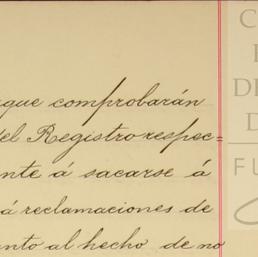 que comprobarán
del Registro respec=
ante á sacarse á
á reclamaciones de
anto al hecho de no